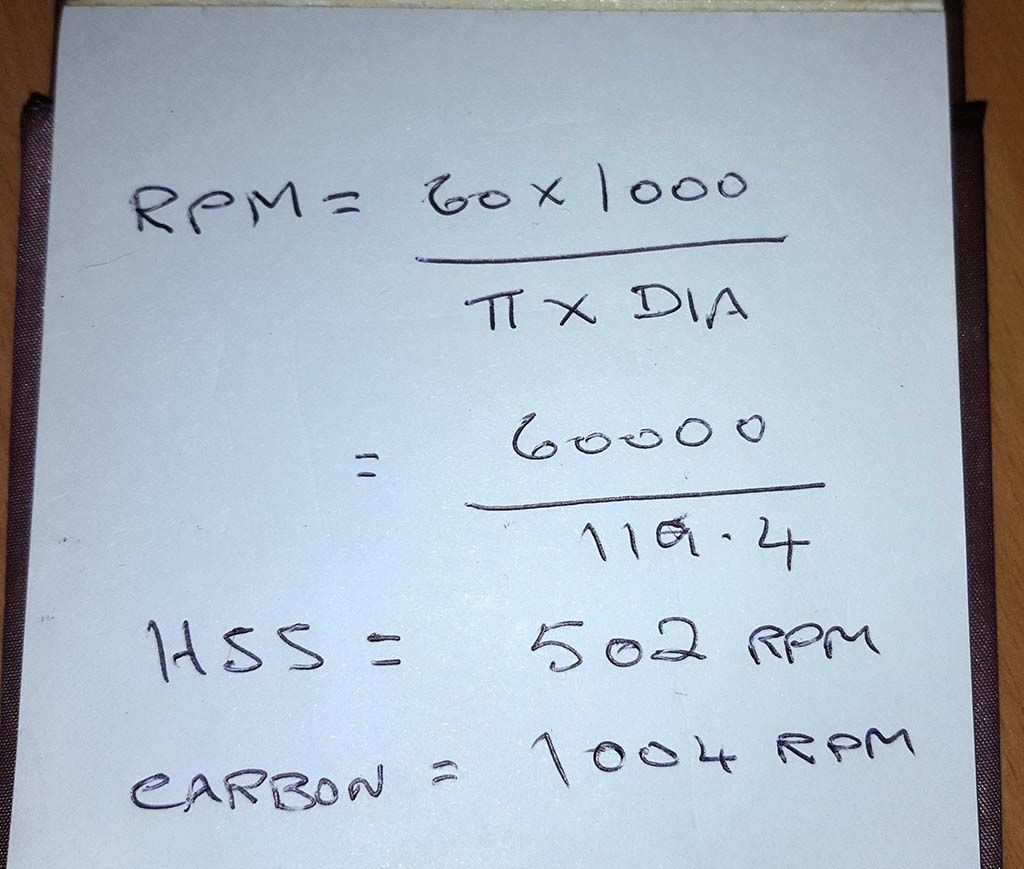 RPM = 60 x 1000
π x DIA
= 60000
119.4
HSS = 502 RPM
CARBON = 1004 RPM